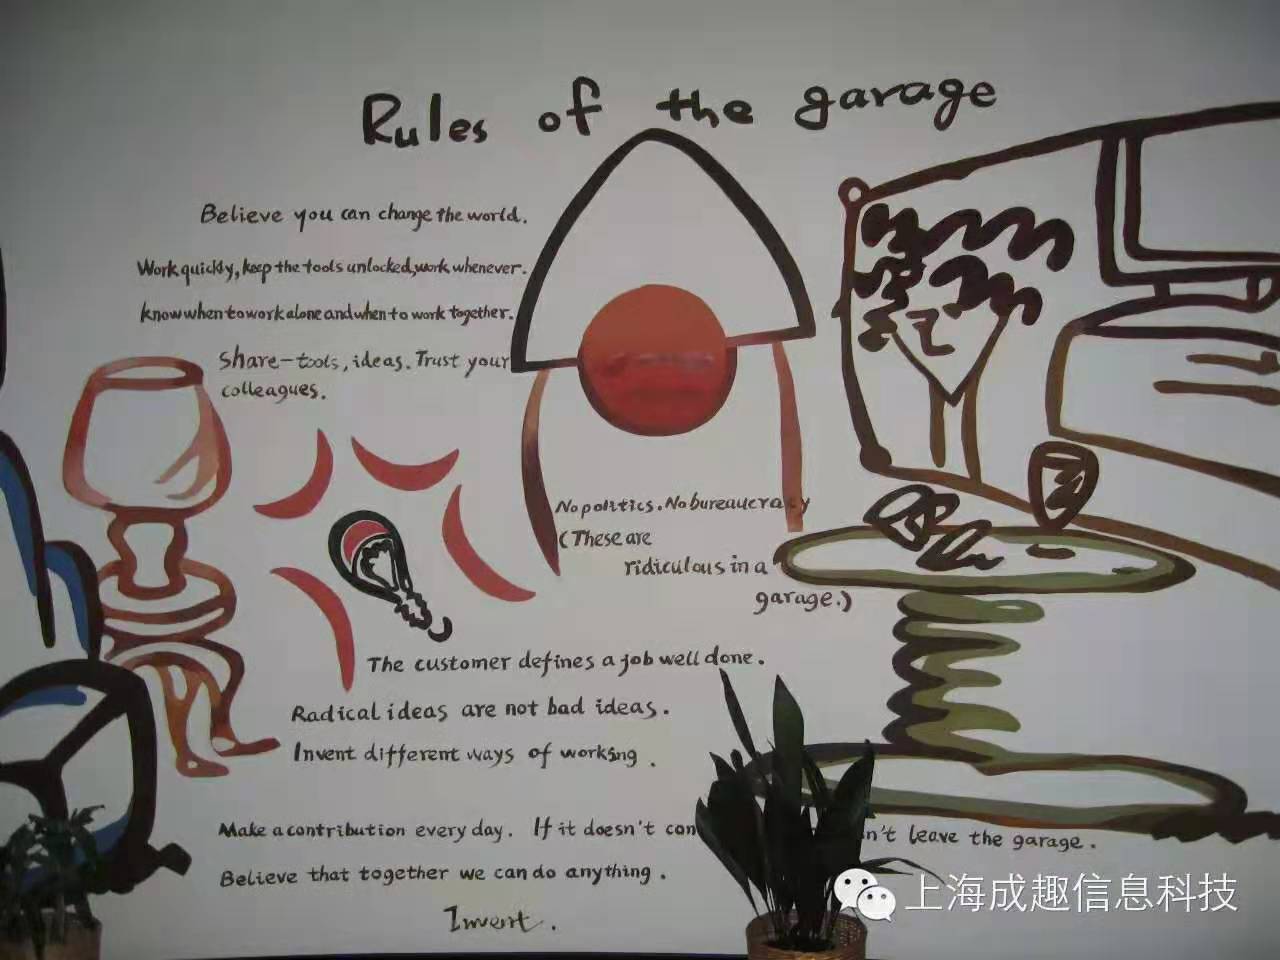 Rules of the garage
Believe you can change the world.
Work quickly, keep the tools unlocked, work whenever.
know when to work alone and when to work together.
share-tools, ideas. Trust your
colleagues.
No politics. No bureaucracy
(These are
ridiculous in a
garage.)
The customer defines a job well done.
Radical ideas are not bad ideas.
Invent different ways of working.
Make a contribution every day. If it doesn't con n't leave the garage.
Believe that together we can do anything.
上海成趣信息科技
Invent.